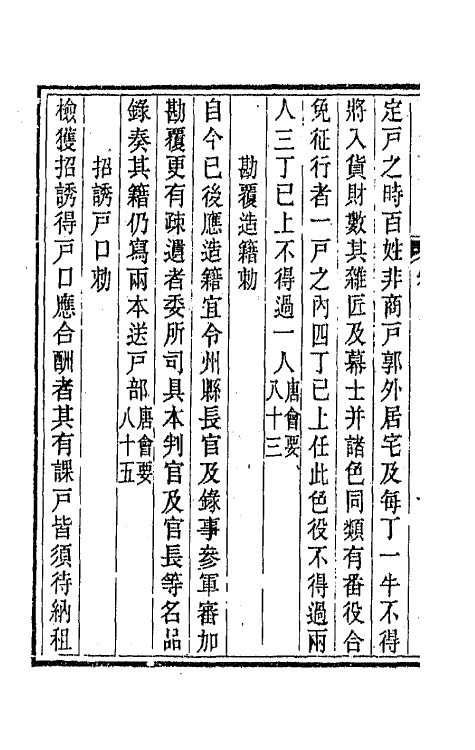 定戸之時百姓非商戸郭外居宅及每丁一牛不得
將入貨財數其雜匠及幕士并諸色同類有番役合
免征行者一戸之內四丁已上任此色役不得過兩
人三丁已上不得過一人唐會要八十三
勘覆造籍勅
自今已後應造籍宜令州縣長官及錄事參軍審加
勘覆更有疎遺者委所司具本判官及官長等名品
錄奏其籍仍寫兩本送戸部唐會要八十五
招誘戸口勅
檢獲招誘得戸口應合酬者其有課戸皆須待納租